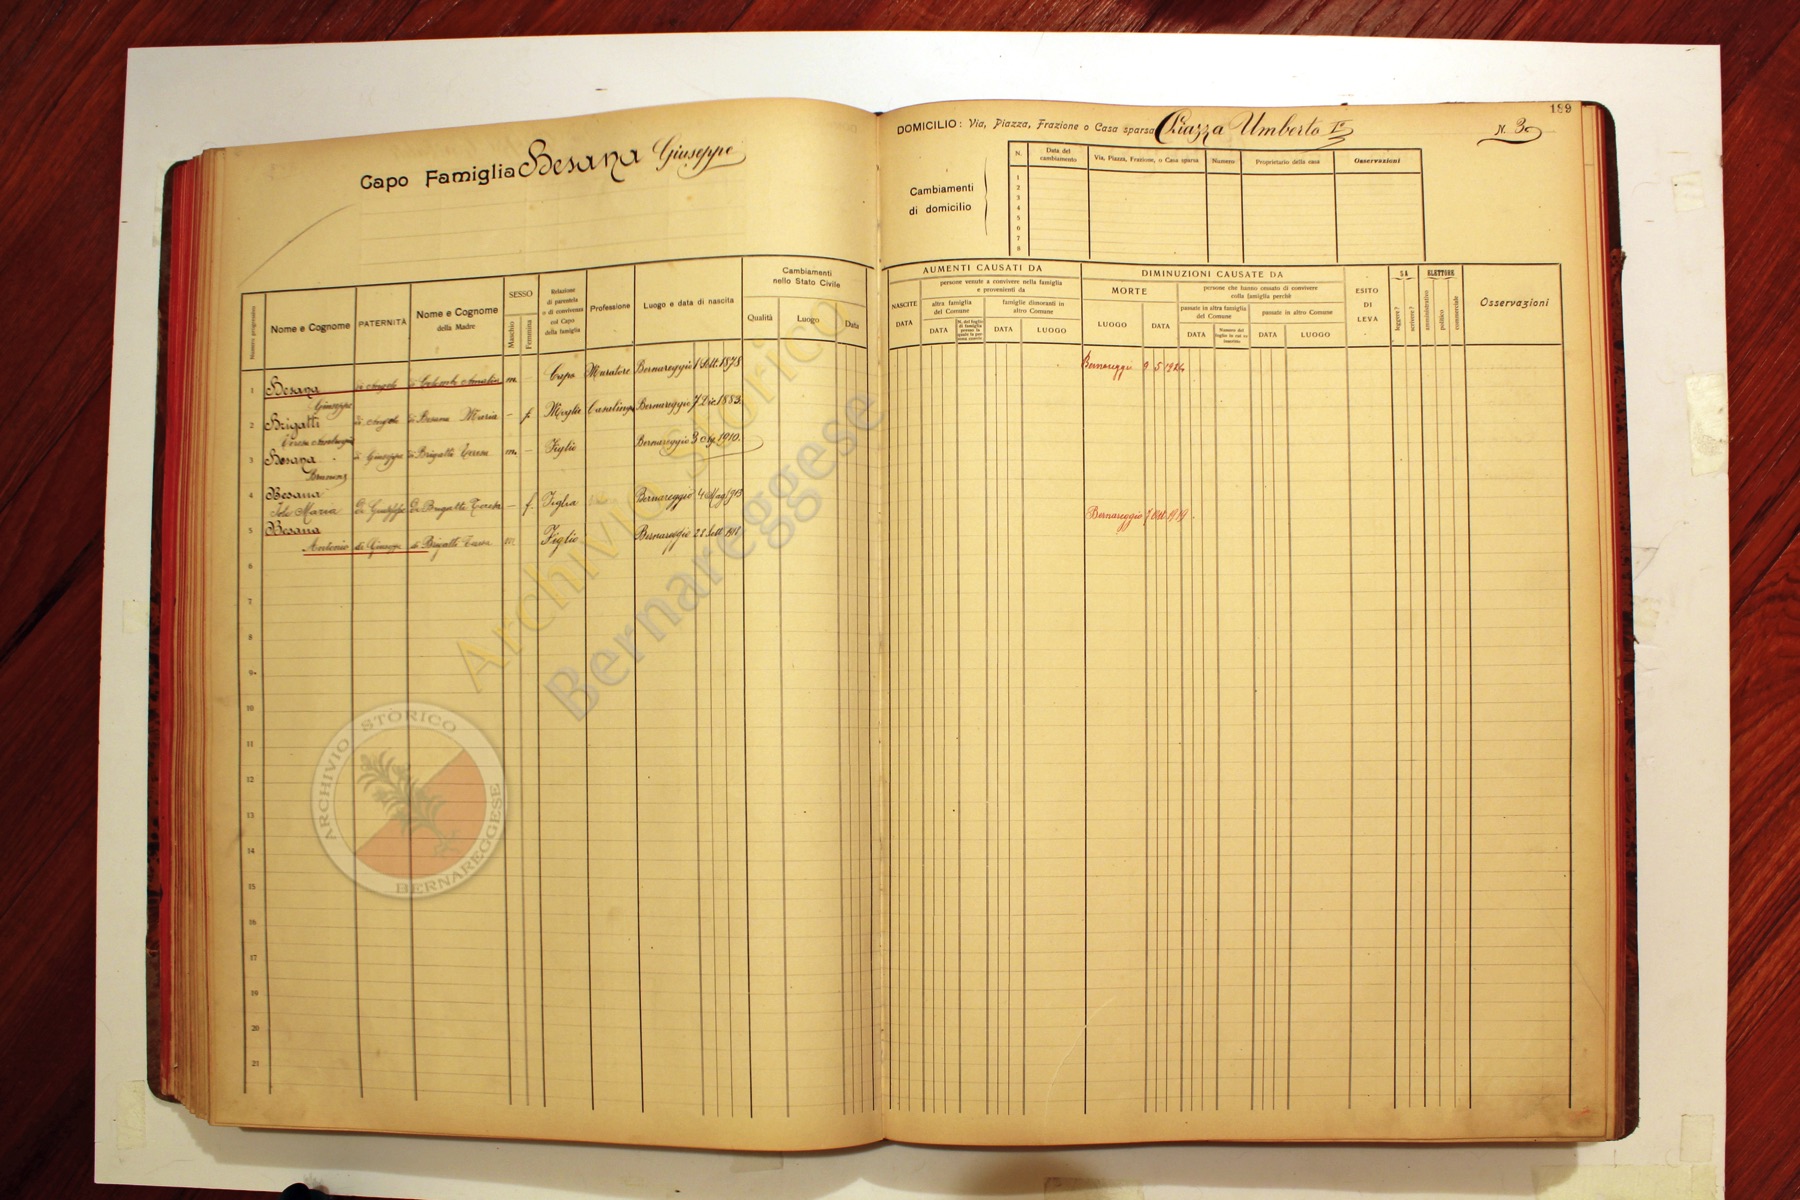 199
Capo Famiglia Besana Giuseppe
DOMICILIO: Via, Piazza, Frazione o Casa sparsa Piazza Umberto I°
N. 30
Cambiamenti
di domicilio
N.
Data del
cambiamento
Via, Piazza, Frazione, o Casa sparsa
Numero
Proprietario della casa
Osservazioni
1
2
3
4
5
6
7
8
Numero progressivo
Nome e Cognome
PATERNITÀ
Nome e Cognome
della Madre
SESSO
Maschio
Femmina
Relazione
di parentela
o di convivenza
col Capo
della famiglia
Professione
Luogo e data di nascita
Cambiamenti
nello Stato Civile
Qualità
Luogo
Data
AUMENTI CAUSATI DA
NASCITE
DATA
persone venute a convivere nella famiglia
e provenienti da
altra famiglia
del Comune
DATA
famiglie dimoranti in
altro Comune
DATA
LUOGO
DIMINUZIONI CAUSATE DA
MORTE
LUOGO
DATA
persone che hanno cessato di convivere
colla famiglia perchè
passate in altra famiglia
del Comune
DATA
Numero del
foglio in cui si
inscritto
passate in altro Comune
DATA
LUOGO
ESITO
DI
LEVA
SA
leggere?
scrivere?
ELETTORE
amministrativo
politico
commerciale
Osservazioni
1 Besana di Angelo m. – Capo Muratore Bernareggio 1 Sett. 1878 Bernareggio 9 5 1924
Giuseppe
2 Brigatti di Angelo di Besana Maria – f. Moglie Casalinga Bernareggio 7 Dic. 1883.
Teresa
3 Besana di Giuseppe di Brigatti Teresa m. – Figlio Bernareggio 3 1910.
4 Besana
Maria di Giuseppe di Brigatti Teresa – f. Figlia Bernareggio 4 Mag. 1913
5 Besana Bernareggio 7 Ott. 1919.
Antonio di Giuseppe di Brigatti Teresa m Figlio Bernareggio 22 Sett 1918
6
7
8
9
10
11
12
13
14
15
16
17
19
20
21
Archivio Storico
Bernareggese
ARCHIVIO STORICO
BERNAREGGESE